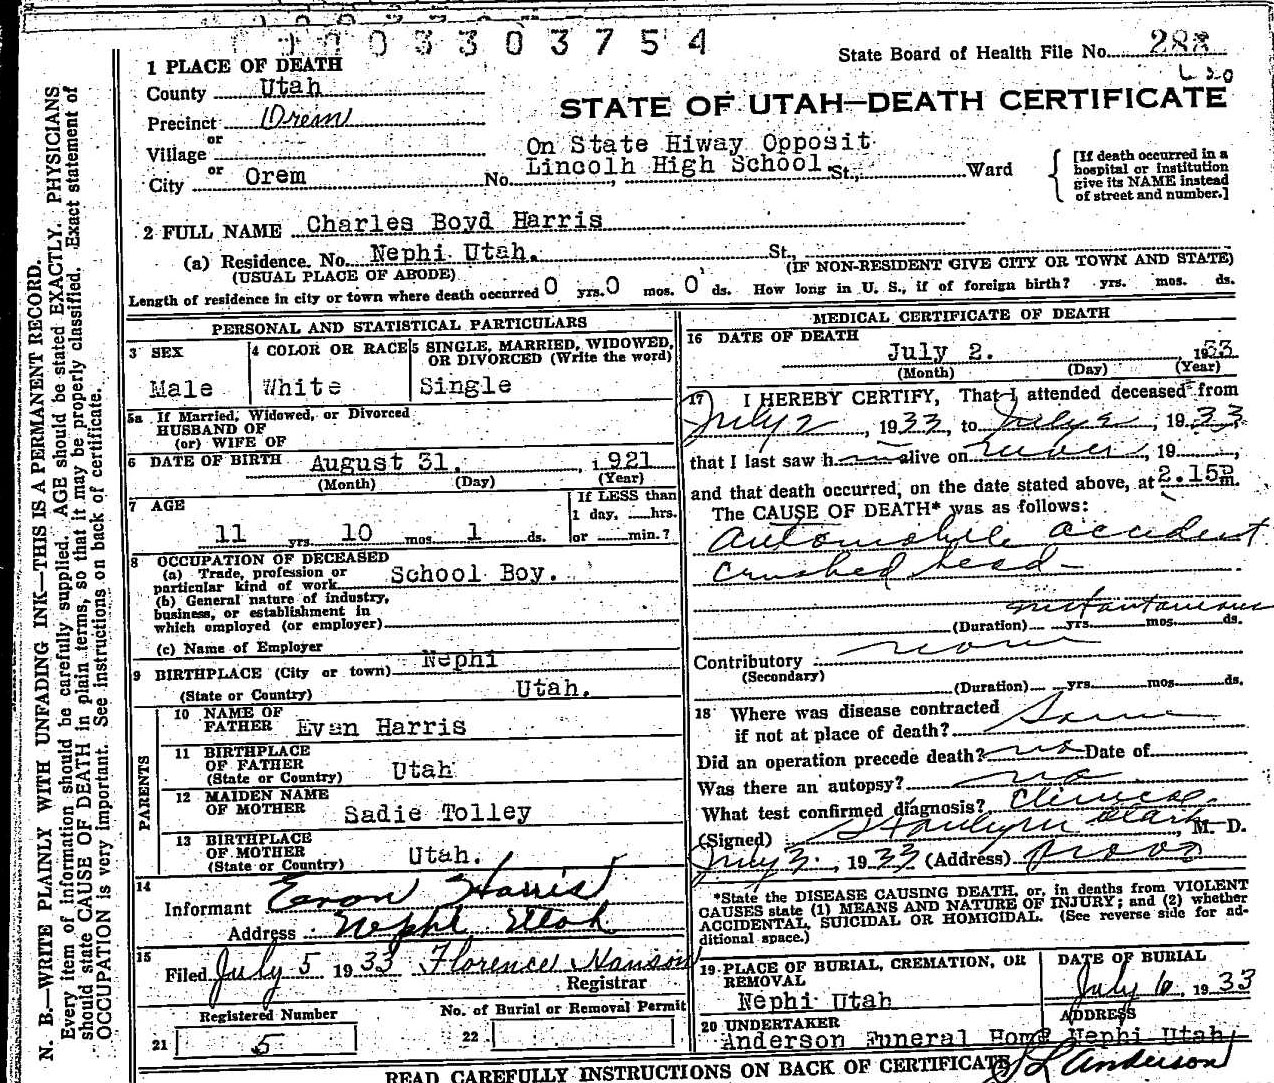 1003303754
State Board of Health File No. 288
1 PLACE OF DEATH
County Utah
STATE OF UTAH—DEATH CERTIFICATE
Precinct Orem
or
Village
On State Hiway Opposit
or
City Orem No. Lincolh High School St., Ward
[If death occurred in a
hospital or institution
give its NAME instead
of street and number.]
2 FULL NAME Charles Boyd Harris
(a) Residence. No. Nephi Utah. St.,
(USUAL PLACE OF ABODE) (IF NON-RESIDENT GIVE CITY OR TOWN AND STATE)
Length of residence in city or town where death occurred 0 yrs. 0 mos. 0 ds. How long in U. S., if of foreign birth? yrs. mos. ds.
PERSONAL AND STATISTICAL PARTICULARS
3 SEX
Male
4 COLOR OR RACE
White
5 SINGLE, MARRIED, WIDOWED,
OR DIVORCED (Write the word)
Single
5a If Married, Widowed, or Divorced
HUSBAND OF
(or) WIFE OF
6 DATE OF BIRTH August 31. , 1921
(Month) (Day) (Year)
7 AGE
11 yrs. 10 mos. 1 ds.
If LESS than
1 day, hrs.
or min.?
8 OCCUPATION OF DECEASED
(a) Trade, profession or
particular kind of work School Boy.
(b) General nature of industry,
business, or establishment in
which employed (or employer)
(c) Name of Employer
9 BIRTHPLACE (City or town) Nephi
(State or Country) Utah.
PARENTS
10 NAME OF
FATHER Evan Harris
11 BIRTHPLACE
OF FATHER
(State or Country) Utah
12 MAIDEN NAME
OF MOTHER Sadie Tolley
13 BIRTHPLACE
OF MOTHER
(State or Country) Utah.
14
Informant Evon Harris
Address Nephi Utah
15
Filed July 5 1933 Florence Hanson
Registrar
Registered Number
21 5
No. of Burial or Removal Permit
22
MEDICAL CERTIFICATE OF DEATH
16 DATE OF DEATH
July 2. , 1933
(Month) (Day) (Year)
17 I HEREBY CERTIFY, That I attended deceased from
July 2 , 1933, to July 2 , 1933,
that I last saw h alive on never , 19 ,
and that death occurred, on the date stated above, at 2.15P m.
The CAUSE OF DEATH* was as follows:
Automobile accident
crushed head
instantaneous
(Duration) yrs. mos. ds.
Contributory none
(Secondary)
(Duration) yrs. mos. ds.
18 Where was disease contracted
if not at place of death? Same
Did an operation precede death? no Date of
Was there an autopsy? no
What test confirmed diagnosis? Clinical
(Signed) Clark, M. D.
July 3. , 1933 (Address) Provo
*State the DISEASE CAUSING DEATH, or, in deaths from VIOLENT
CAUSES state (1) MEANS AND NATURE OF INJURY; and (2) whether
ACCIDENTAL, SUICIDAL OR HOMICIDAL. (See reverse side for ad-
ditional space.)
19 PLACE OF BURIAL, CREMATION, OR
REMOVAL
Nephi Utah
DATE OF BURIAL
July 6, 1933
20 UNDERTAKER
Anderson Funeral Home
ADDRESS
Nephi Utah
READ CAREFULLY INSTRUCTIONS ON BACK OF CERTIFICATE
Anderson
N. B.—WRITE PLAINLY WITH UNFADING INK—THIS IS A PERMANENT RECORD.
Every item of information should be carefully supplied. AGE should be stated EXACTLY. PHYSICIANS
should state CAUSE OF DEATH in plain terms, so that it may be properly classified. Exact statement of
OCCUPATION is very important. See instructions on back of certificate.